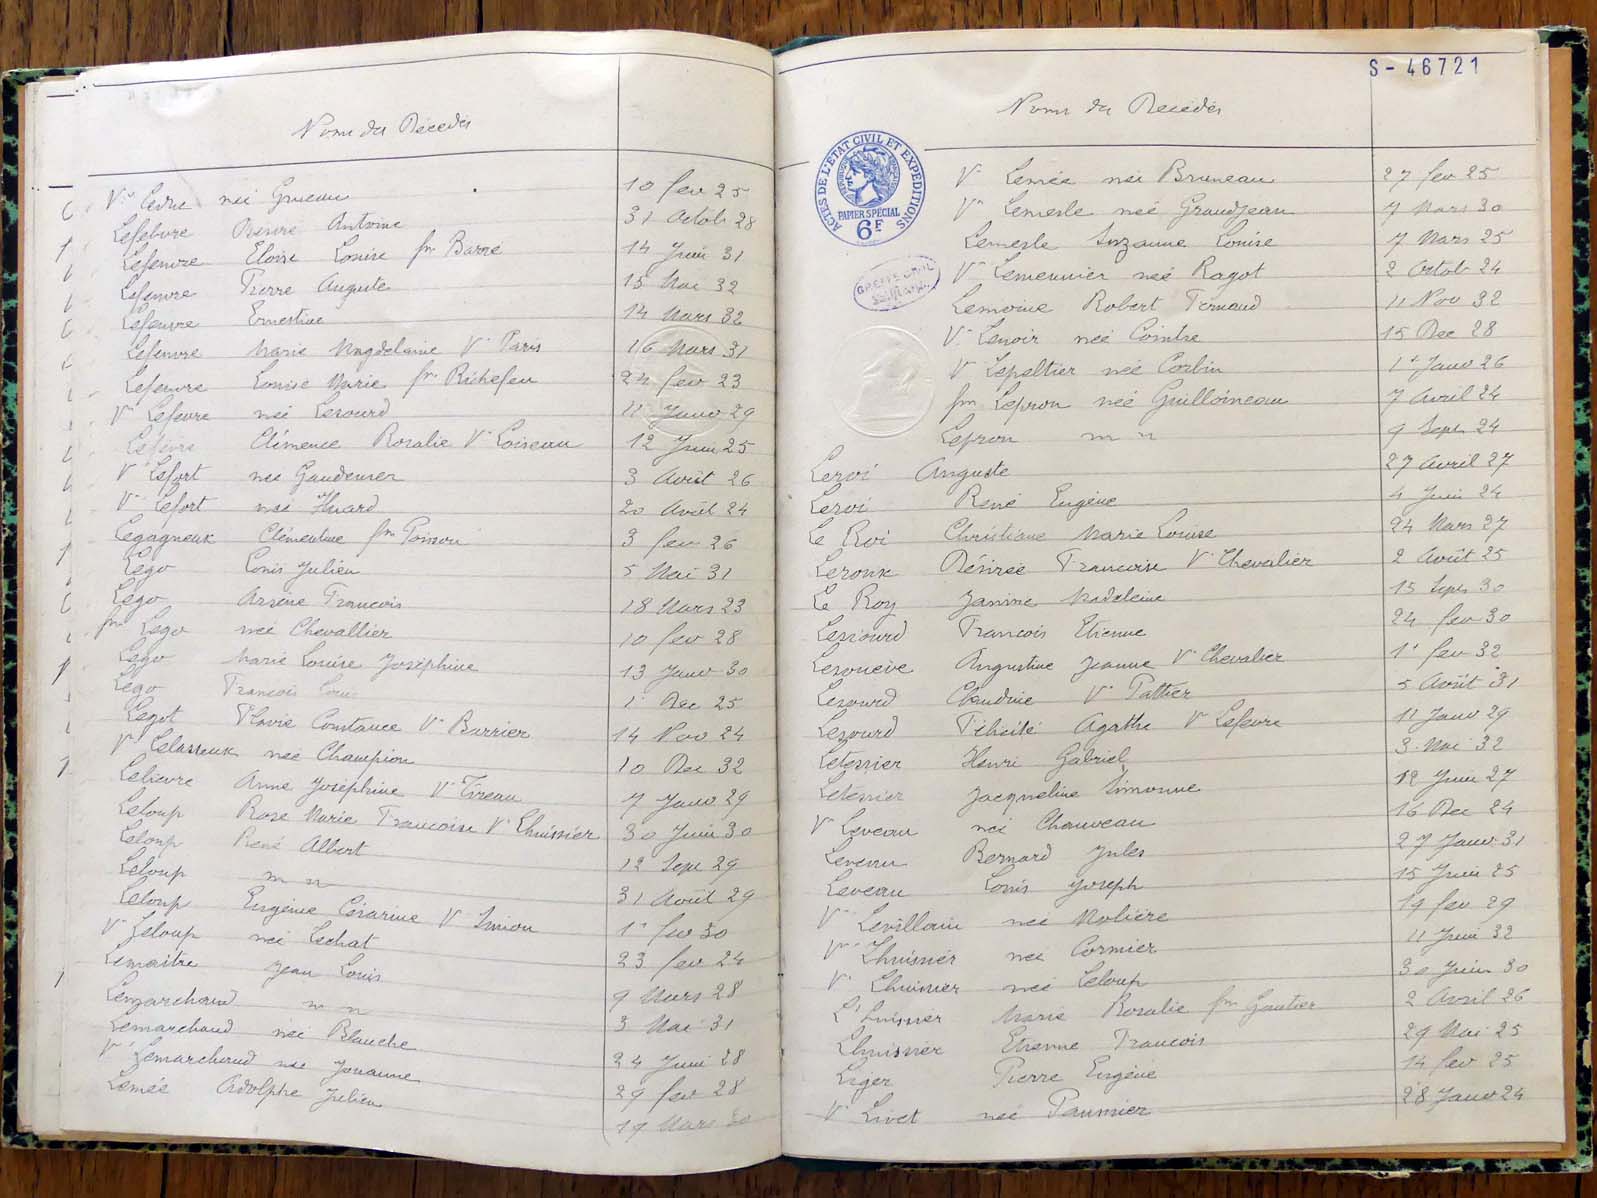 Noms des Décédés
Vve Ledru née Grueau 10 fev 25
Lefebvre Désiré Antoine 31 Octob 28
Lefeuvre Eloïse Louise fme Barré 14 Juin 31
Lefeuvre Pierre Auguste 15 Mai 32
Lefeuvre Ernestine 14 Mars 32
Lefeuvre Marie Magdelaine Ve Paris 16 Mars 31
Lefeuvre Louise Marie fme Richefeu 24 fev 23
Ve Lefeuvre née Lesourd 11 Janv 29
Lefeuvre Clémence Rosalie Ve Loiseau 12 Juin 25
Ve Lefort née Gaudemer 3 Août 26
Ve Lefort née Huard 20 Août 24
Legagneux Clémentine fme Poisson 3 fev 26
Lego Louis Julien 5 Mai 31
Lego Arsène François 18 Mars 23
fme Lego née Chevallier 10 fev 28
Lego Marie Louise Joséphine 13 Janv 30
Lego François Louis 1er Dec 25
Legot Flavie Constance Ve Barrier 14 Nov 24
Ve Lelasseux née Champion 10 Dec 32
Lelievre Anne Joséphine Ve Tireau 7 Janv 29
Leloup Rose Marie Francoise Ve Lhuissier 30 Juin 30
Leloup René Albert 12 Sept 29
Leloup m n 31 Août 29
Leloup Eugénie Césarine Ve Simon 1er fev 30
Ve Leloup née Lechat 23 fev 24
Lemaitre Jean Louis 9 Mars 28
Lemarchand m n 3 Mai 31
Lemarchand née Blanche 24 Juin 28
Ve Lemarchand née Jouanne 29 fev 28
Lemée Adolphe Julien 19 Mars 30
S-46721
Noms des Décédés
ACTES DE L'ÉTAT CIVIL ET EXPÉDITIONS
PAPIER SPÉCIAL
6F
GREFFE CIVIL
Ve Lemée née Bruneau 27 fev 25
Ve Lemesle née Grandjean 7 Mars 30
Lemesle Suzanne Louise 7 Mars 25
Ve Lemeunier née Ragot 2 Octob 24
Lemoine Robert Fernand 11 Nov 32
Ve Lenoir née Cointre 15 Dec 28
Ve Lepeltier née Corbin 1er Janv 26
fme Lepron née Guilloineau 7 Avril 24
Lepron m n 9 Sept 24
Leroi Auguste 27 Avril 27
Leroi René Eugène 4 Juin 24
Le Roi Christiane Marie Louise 24 Mars 27
Leroux Désirée Francoise Ve Chevalier 2 Août 25
Le Roy Janine Madeleine 15 Sept 30
Lesiourd Francois Etienne 24 fev 30
Lesoueve Augustine Jeanne Ve Chevalier 1er fev 32
Lesourd Claudine Ve Pattier 5 Août 31
Lesourd Félicité Agathe Ve Lefevre 11 Janv 29
Letessier Henri Gabriel 3 Mai 32
Letessier Jacqueline Simonne 12 Juin 27
Ve Leveau née Chauveau 16 Dec 24
Leveau Bernard Jules 27 Janv 31
Leveau Louis Joseph 15 Juin 25
Ve Levillain née Molière 19 fev 29
Ve Lhuissier née Cormier 11 Juin 32
Ve Lhuissier née Leloup 30 Juin 30
L'huissier Marie Rosalie fme Gautier 2 Avril 26
Lhuissier Etienne Francois 29 Mai 25
Liger Pierre Eugène 14 fev 25
Ve Livet née Paumier 28 Janv 24